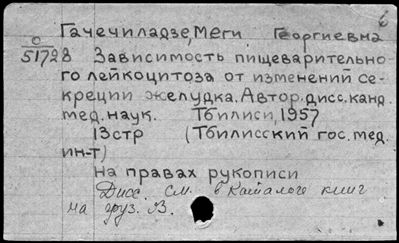 Гачечиладзе, Меги Георгиевна
О
51728 Зависимость пищеварительно-
го лейкоцитоза от изменений се-
креции желудка. Автор.дисс.канд.
мед.наук. Тбилиси, 1957
13стр (Тбилисский гос.мед.
ин-т)
На правах рукописи
Дисс. см. в Каталоге книг
на груз. Я.